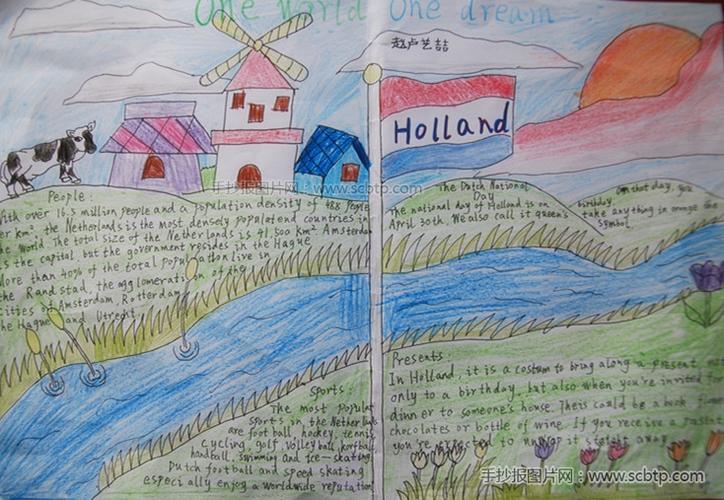 One world One dream
赵卢艺喆
Holland
People:
With over 16.5 million people and a population density of 488 people
per km², the Netherlands is the most densely populatend countries in
the World. The total size of the Netherlands is 41,500 km² Amsterdam
is the capital, but the government resides in the Hague
More than 40% of the total population live in
the Randstad, the agglomeration of the
Cities of Amsterdam, Rotterdam,
the Hague and Utrecht.
The Dutch National
Day
The national day of Holland is on
April 30th. We also call it queen's
birthday
On that day, you
take anything in orange the
symbol.
手抄报图片网：www.scbtp.com
Sports:
The most popular
sports in the Netherlands
are football, hockey, tennis,
cycling, golf, volleyball, korfball,
handball, swimming and ice-skating.
Dutch football and speed skating
especially enjoy a worldwide reputation
Presents:
In Holland, it is a costum to bring along a present
only to a birthday, but also when you're invited
dinner to someone's house. Theis could be a book
chocolates or bottle of wine. If you receive a
you're expected to unwrap it straight away
手抄报图片网：www.scbtp.com